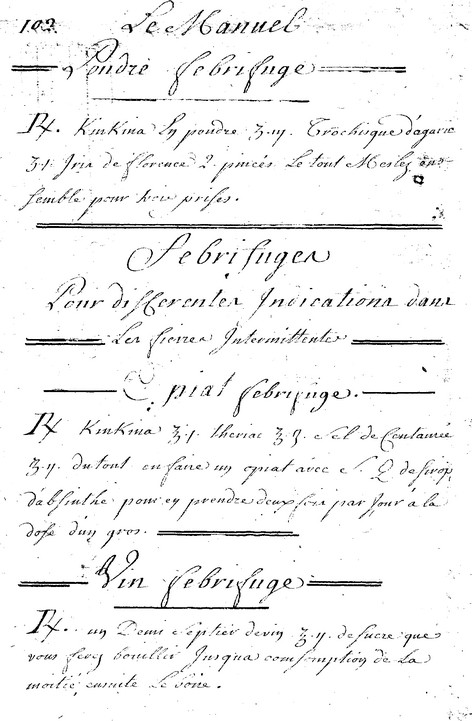 102 Le Manuel
Poudre febrifuge
Rx. KinKina En poudre ʒ.ij. Trochisque d'agaric
ʒ.j. Iris de florence 2. pincés Le tout Meslez en-
semble pour trois prises.
Febrifuges
Pour differentes Indications dans
Les fievres Intermittentes
Opiat febrifuge.
Rx KinKina ʒ.j. theriac ʒ. Sel de Centaurée
ʒ.ij. du tout en faire un opiat avec S. Q de sirop
d'absinthe pour en prendre deux fois par Jour a la
dose d'un gros.
Vin febrifuge
Rx. un Demi Septier de vin ʒ.ij. de sucre que
vous ferez bouillir Jusqua comsomption de La
moitié, ensuite Le boire.